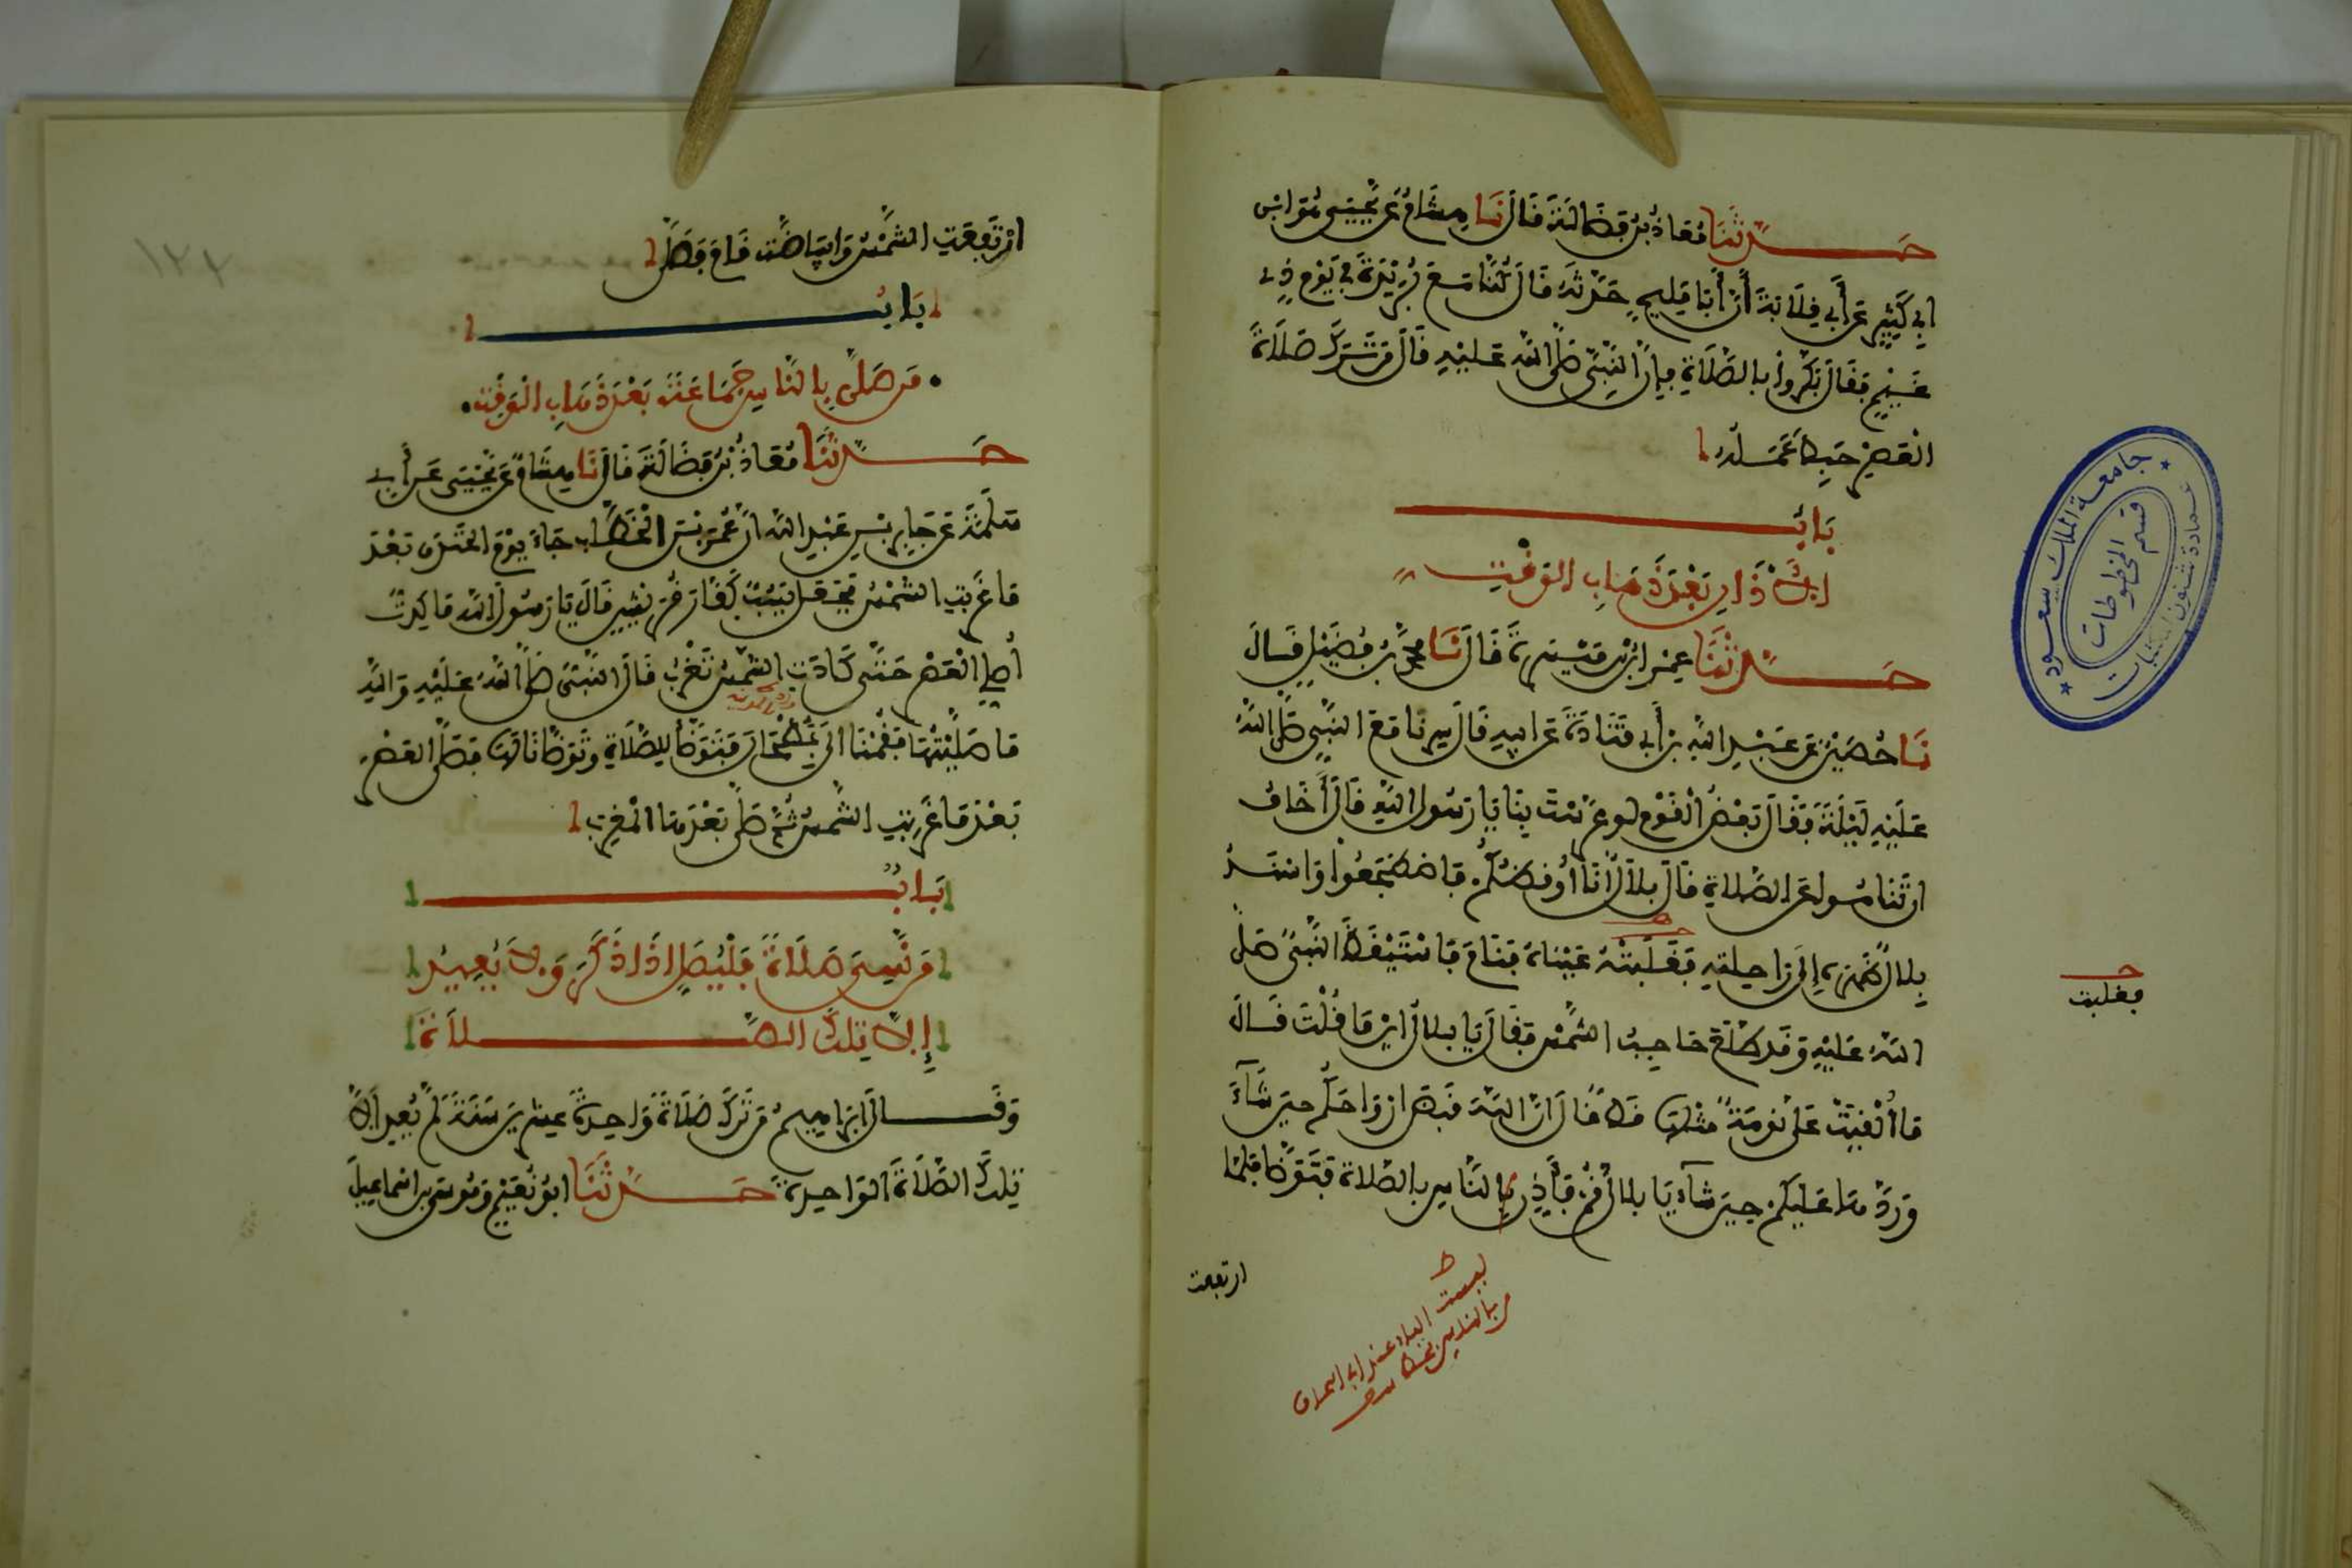 حَدَّثَنَا مُعَاذُ بْنُ فَضَالَةَ قَالَ نَا هِشَامٌ عَنْ يَحْيَى هُوَ ابْنُ
أَبِي كَثِيرٍ عَنْ أَبِي قِلَابَةَ أَنَّ أَبَا مَلِيحٍ حَدَّثَهُ قَالَ كُنَّا مَعَ بُرَيْدَةَ فِي يَوْمٍ ذِي
غَيْمٍ فَقَالَ بَكِّرُوا بِالصَّلَاةِ فَإِنَّ النَّبِيَّ صَلَّى اللَّهُ عَلَيْهِ قَالَ مَنْ تَرَكَ صَلَاةَ
الْعَصْرِ حَبِطَ عَمَلُهُ
بَابُ
الْأَذَانِ بَعْدَ ذَهَابِ الْوَقْتِ
حَدَّثَنَا عِمْرَانُ بْنُ مَيْسَرَةَ قَالَ نَا مُحَمَّدُ بْنُ فُضَيْلٍ قَالَ
نَا حُصَيْنٌ عَنْ عَبْدِ اللَّهِ بْنِ أَبِي قَتَادَةَ عَنْ أَبِيهِ قَالَ سِرْنَا مَعَ النَّبِيِّ صَلَّى اللَّهُ
عَلَيْهِ لَيْلَةً فَقَالَ بَعْضُ الْقَوْمِ لَوْ عَرَّسْتَ بِنَا يَا رَسُولَ اللَّهِ قَالَ أَخَافُ
أَنْ تَنَامُوا عَنِ الصَّلَاةِ قَالَ بِلَالٌ أَنَا أُوقِظُكُمْ فَاضْطَجَعُوا وَأَسْنَدَ
بِلَالٌ ظَهْرَهُ إِلَى رَاحِلَتِهِ فَغَلَبَتْهُ عَيْنَاهُ فَنَامَ فَاسْتَيْقَظَ النَّبِيُّ صَلَّى
اللَّهُ عَلَيْهِ وَقَدْ طَلَعَ حَاجِبُ الشَّمْسِ فَقَالَ يَا بِلَالُ أَيْنَ مَا قُلْتَ قَالَ
مَا أُلْقِيَتْ عَلَيَّ نَوْمَةٌ مِثْلُهَا قَطُّ قَالَ إِنَّ اللَّهَ قَبَضَ أَرْوَاحَكُمْ حِينَ شَاءَ
وَرَدَّهَا عَلَيْكُمْ حِينَ شَاءَ يَا بِلَالُ قُمْ فَأَذِّنْ بِالنَّاسِ بِالصَّلَاةِ فَتَوَضَّأَ فَلَمَّا
فغلبت
ارتفعت
ليست الباء عند أبي إسحاق
جامعة الملك سعود
عمادة شئون المكتبات
قسم المخطوطات
ارْتَفَعَتِ الشَّمْسُ وَابْيَاضَّتْ قَامَ فَصَلَّى
بَابُ
مَنْ صَلَّى بِالنَّاسِ جَمَاعَةً بَعْدَ ذَهَابِ الْوَقْتِ
حَدَّثَنَا مُعَاذُ بْنُ فَضَالَةَ قَالَ نَا هِشَامٌ عَنْ يَحْيَى عَنْ أَبِي
سَلَمَةَ عَنْ جَابِرِ بْنِ عَبْدِ اللَّهِ أَنَّ عُمَرَ بْنَ الْخَطَّابِ جَاءَ يَوْمَ الْخَنْدَقِ بَعْدَ
مَا غَرَبَتِ الشَّمْسُ فَجَعَلَ يَسُبُّ كُفَّارَ قُرَيْشٍ قَالَ يَا رَسُولَ اللَّهِ مَا كِدْتُ
أُصَلِّي الْعَصْرَ حَتَّى كَادَتِ الشَّمْسُ تَغْرُبُ قَالَ النَّبِيُّ صَلَّى اللَّهُ عَلَيْهِ وَاللَّهِ
مَا صَلَّيْتُهَا فَقُمْنَا إِلَى بُطْحَانَ فَتَوَضَّأَ لِلصَّلَاةِ وَتَوَضَّأْنَا لَهَا فَصَلَّى الْعَصْرَ
بَعْدَ مَا غَرَبَتِ الشَّمْسُ ثُمَّ صَلَّى بَعْدَهَا الْمَغْرِبَ
بَابُ
مَنْ نَسِيَ صَلَاةً فَلْيُصَلِّ إِذَا ذَكَرَ وَلَا يُعِيدُ
إِلَّا تِلْكَ الصَّلَاةَ
وَقَالَ إِبْرَاهِيمُ مَنْ تَرَكَ صَلَاةً وَاحِدَةً عِشْرِينَ سَنَةً لَمْ يُعِدْ إِلَّا
تِلْكَ الصَّلَاةَ الْوَاحِدَةَ حَدَّثَنَا أَبُو نُعَيْمٍ وَمُوسَى بْنُ إِسْمَاعِيلَ
١٢٢